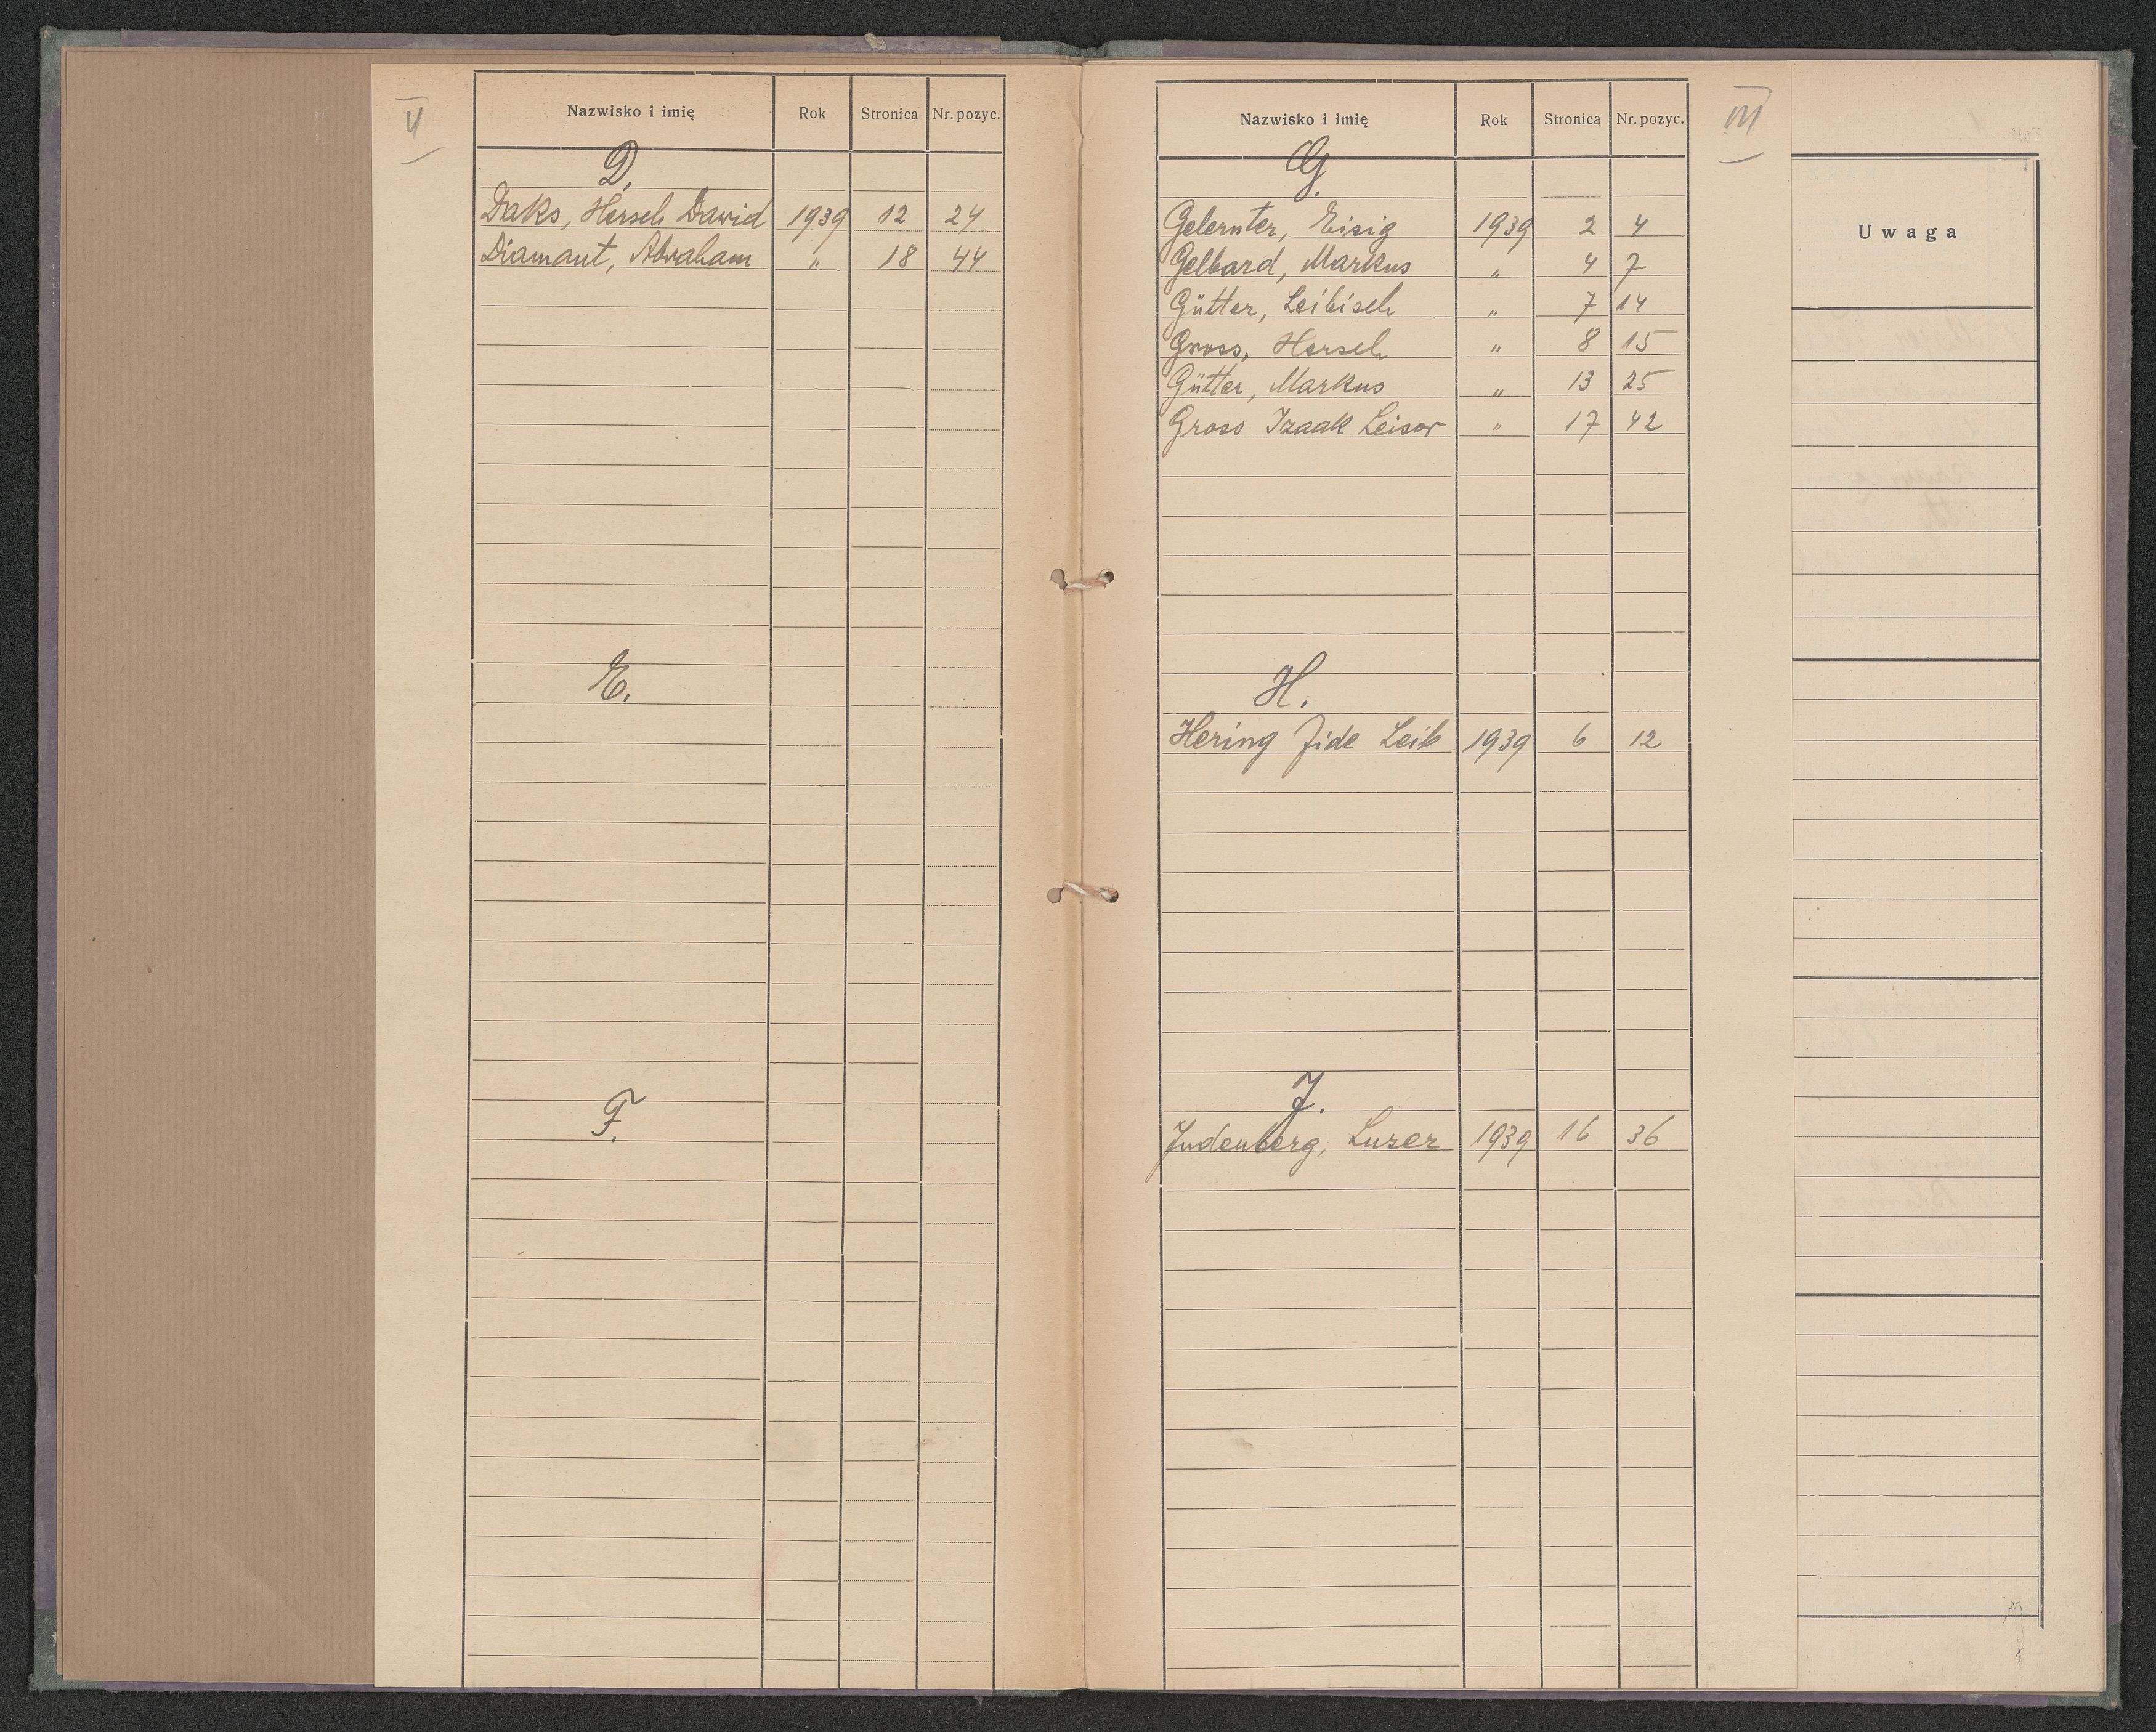 II
Nazwisko i imię Rok Stronica Nr. pozyc.
D.
Daks, Hersch Dawid 1939 12 24
Diamant, Abraham " 18 44
E.
F.
III
Nazwisko i imię Rok Stronica Nr. pozyc.
G.
Gelernter, Eisig 1939 2 4
Gelbard, Markus " 4 7
Gütter, Leibisch " 7 14
Gross, Hersch " 8 15
Gütter, Markus " 13 25
Gross Izaak Leisor " 17 42
H.
Hering Jide Leib 1939 6 12
J.
Judenberg, Luzer 1939 16 36
Uwaga